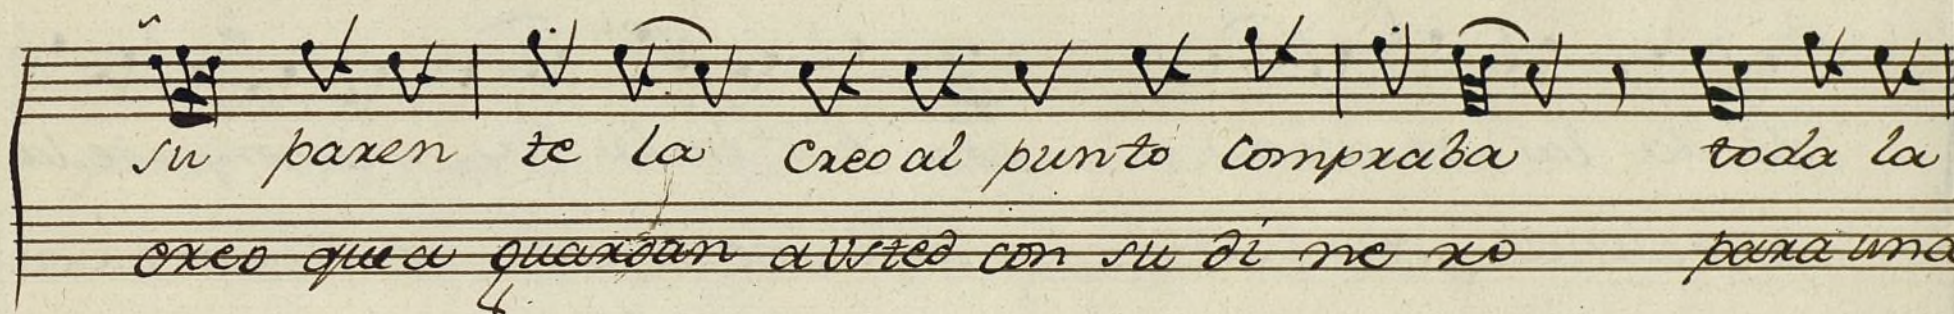 su paren te la Creo al punto Compraba toda la
creo que a guardan a Usted con su di ne ro para una